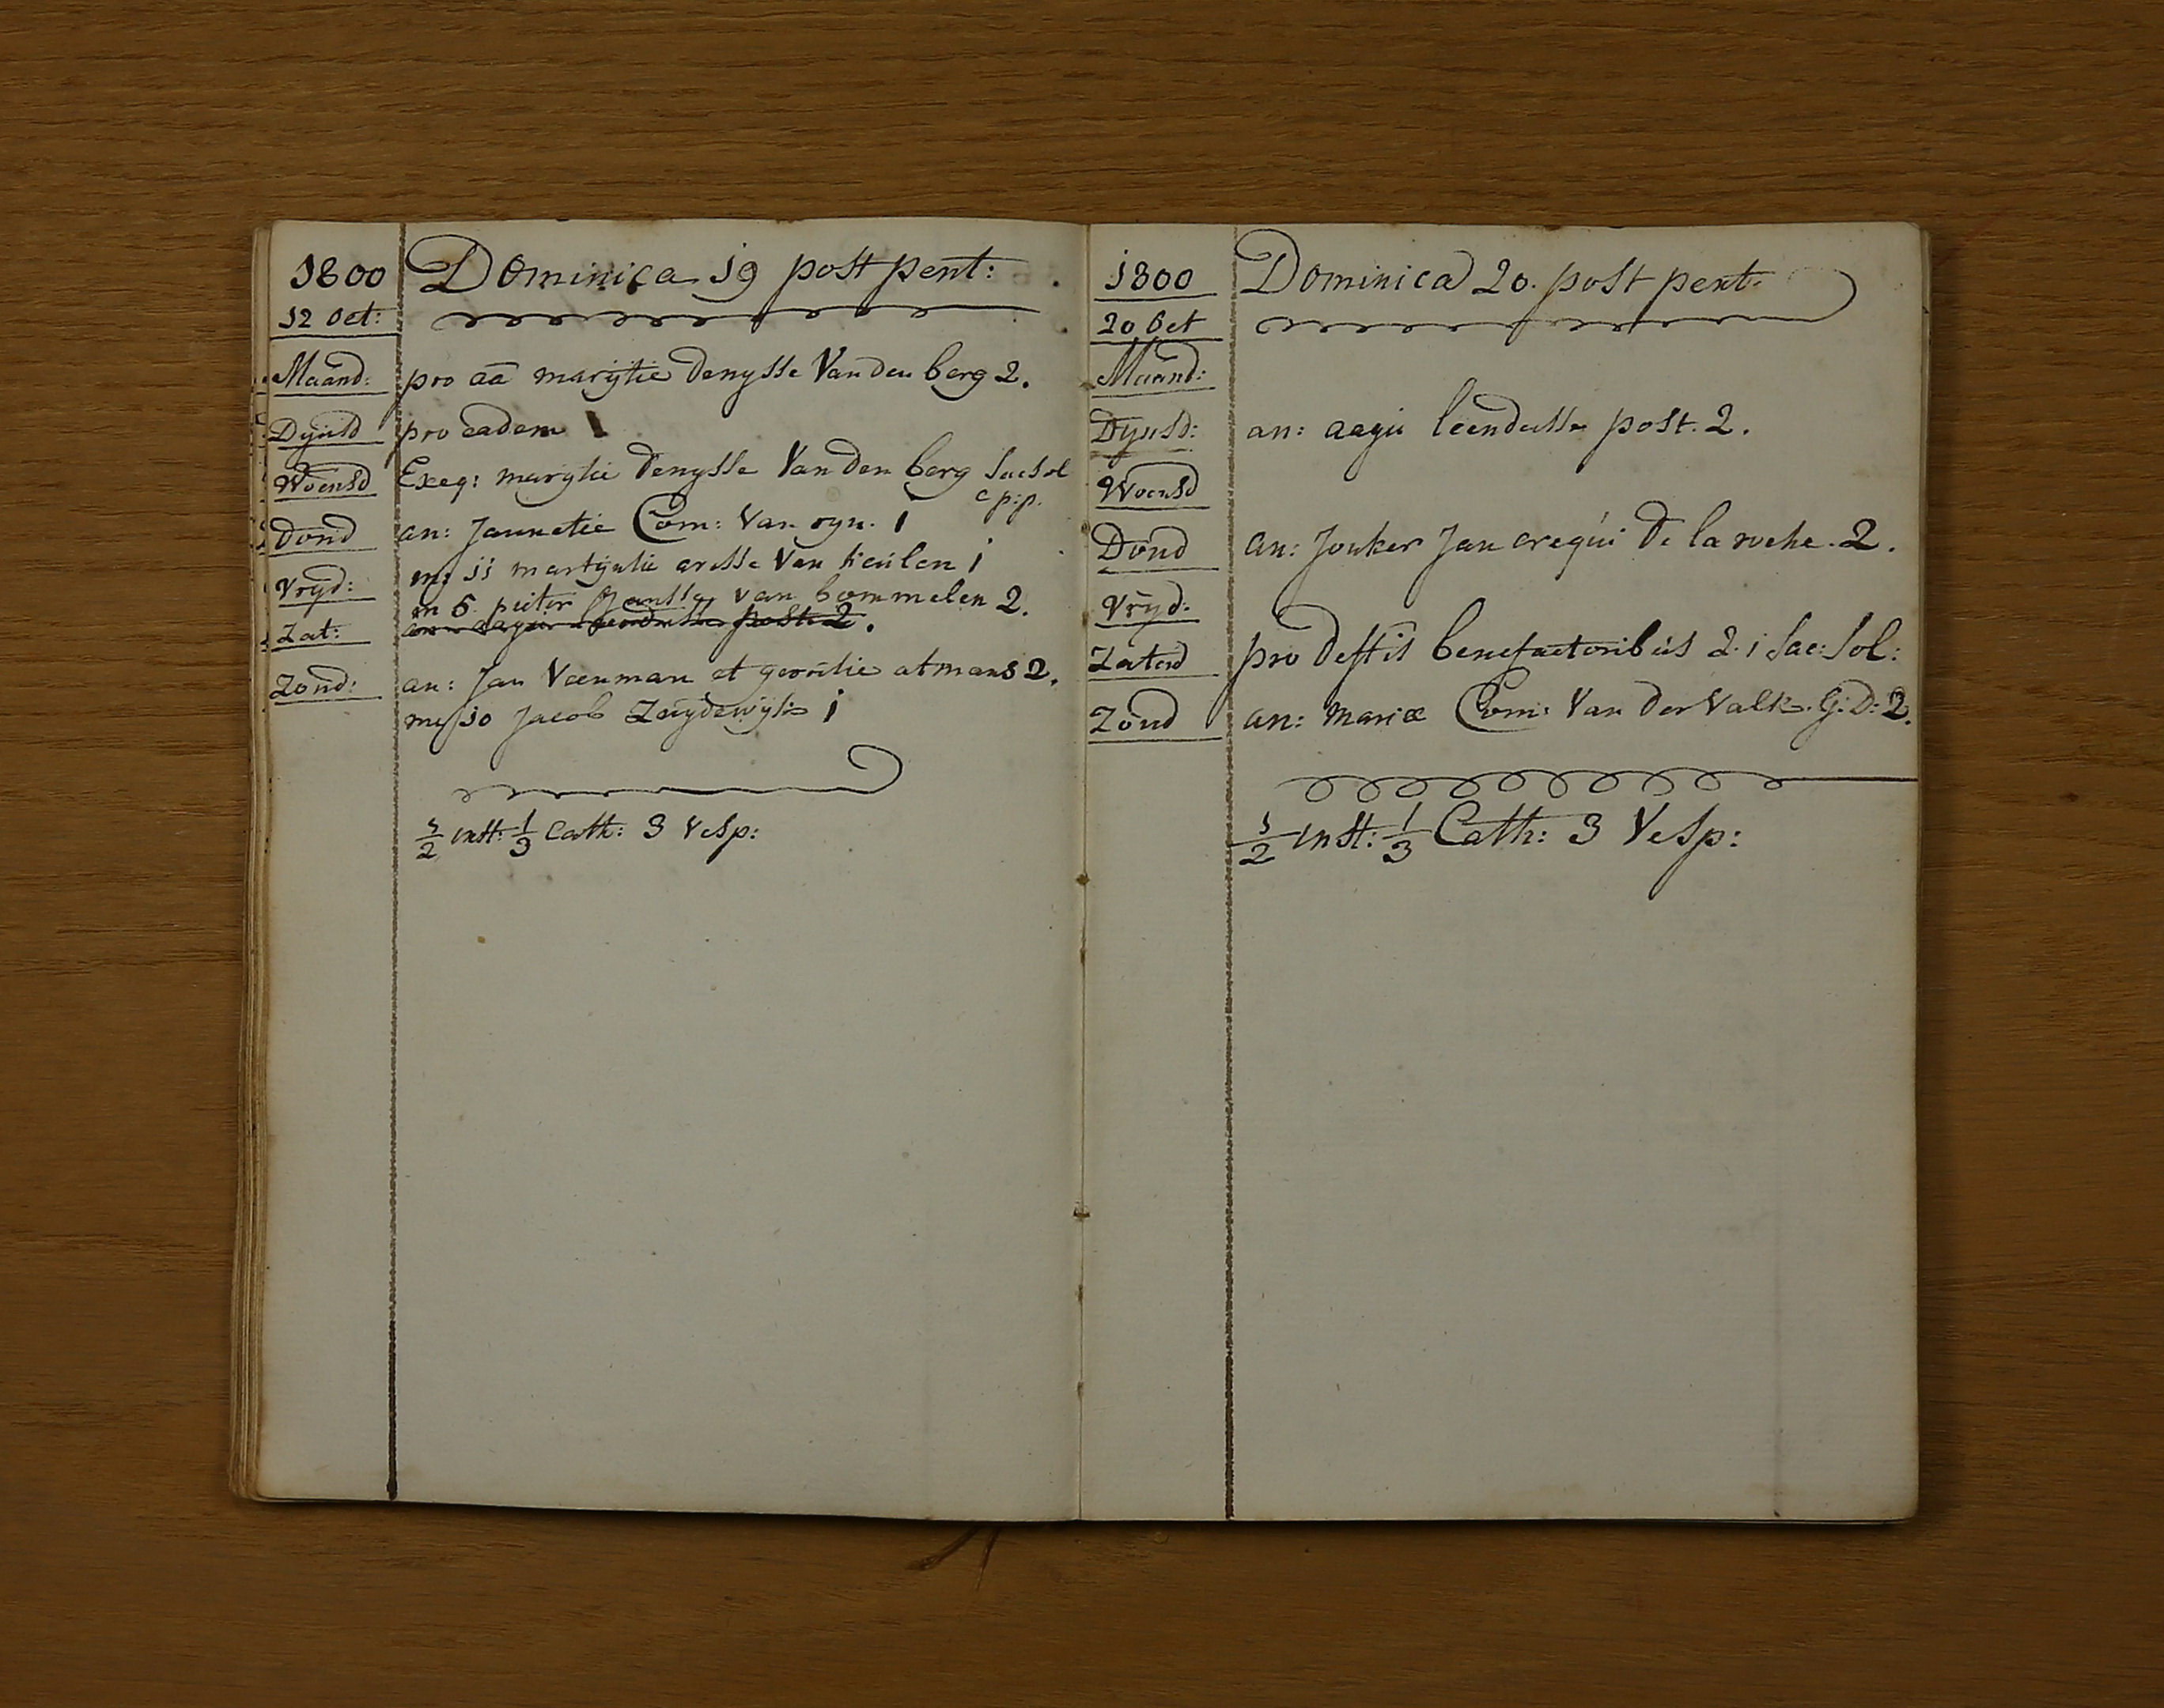 1800 Dominica 19 post pent:
12 Oct:
Maand: pro aā marijtie denysse Van den berg 2.
Dynsd pro eadem 1
Woensd Exeq: marijtie denysse Van den berg Sac Sol
c p:p.
Dond an: Jannetie Corn: Van ryn. 1
Vryd: m 11 martijntie aresse Van keulen 1
m 6 pieter Jansse van bommelen 2.
Zat: an: aagie leendertsse post 2.
Zond: an: Jan Veenman et geertie atmans 2.
10 Jacob Zuydewijk 1
1/2 inst: 1/3 Cath: 3 Vesp:
1800 Dominica 20. post pent.
20 Oct
Maand:
Dynsd: an: aagie leendertsse post. 2.
Woensd
Dond an: Jonker Jan crequi de la roche. 2.
Vryd:
Zaterd pro deftis benefactoribus 2. 1 Sac: Sol:
Zond an: Mariæ Corn: Van der Valk. G: D: 2.
1/2 inst: 1/3 Cath: 3 Vesp: